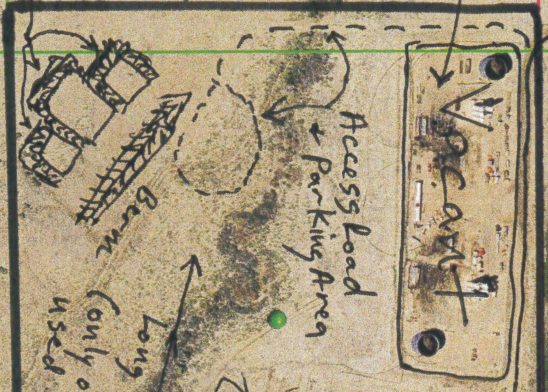 Vacant
Access Road
+ Parking Area
Berm
Long
(only
used